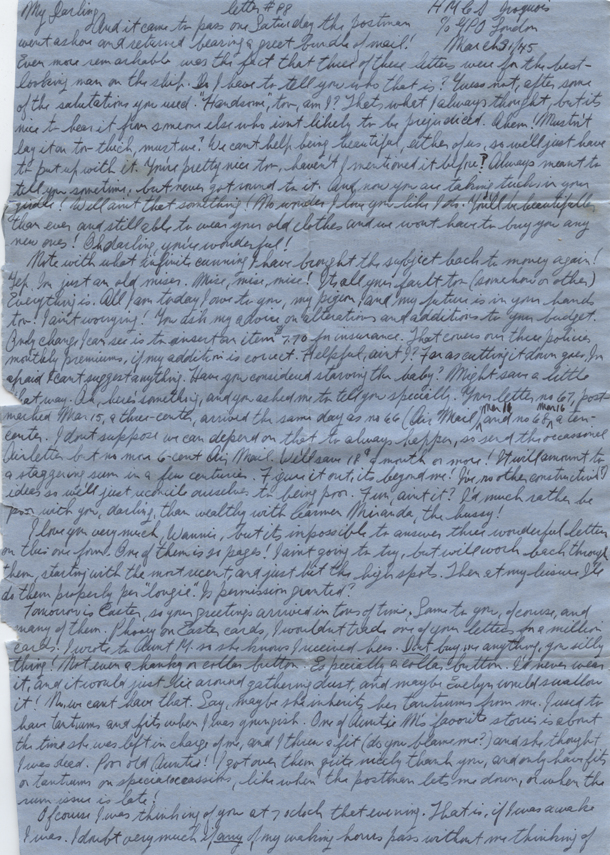 My Darling, letter #88 H.M.C.S. Iroquois
And it came to pass one Saturday the postman c/o GPO London
went ashore and returned bearing a great bundle of mail! March 31/45
Even more remarkable was the fact that three of these letters were for the best-
looking man on the ship. Do I have to tell you who that is? Guess not, after some
of the salutations you used. Handsome, too, am I? That's what I always thought, but its
nice to hear it from someone else who isnt likely to be prejudiced. Ahem! Mustn't
lay it on too thick, must we? We cant help being beautiful, either of us, so we'll just have
to put up with it. You're pretty nice too, haven't I mentioned it before? Always meant to
tell you sometime, but never got round to it. And now you are taking tucks in your
! Well aint that something! No wonder I love you like I do. You'll be beautifuller
than ever and still able to wear your old clothes and we wont have to buy you any
new ones! Oh darling, you're wonderful!
Note with what infinite cunning I have brought the subject back to money again!
Yep. I'm just an old miser. Mise, mise, mise! Its all your fault too (somehow or other)
Everything is. All I am today I owe to you, my pigeon, and my future is in your hands
too! I aint worrying! You ask my advice on alterations and additions to your budget.
Only change I can see is to insert an item $7.70 for insurance. That covers our three policies
monthly premiums, if my addition is correct. Helpful, aint I? Far as cutting it down goes, I'm
afraid I cant suggest anything. Have you considered starving the baby? Might save a little
that way. Oh, here's something, and you asked me to tell you specially. Your letter no 67, post-
marked Mar 15, a three-center, arrived the same day as no 66 (Air Mail, Mar 16) and no 68, Mar 16 a ten-
center. I dont suppose we can depend on that to always happen, so send the occasional
Air letter but no more 6-cent Air Mail. Will save 18¢ a month or more! It will amount to
a staggering sum in a few centuries. Figure it out, its beyond me! I've no other constructive
ideas so we'll just reconcile ourselves to being poor. Fun, aint it? I'd much rather be
poor with you, darling, than wealthy with Carmen Miranda, the hussy!
I love you very much, Wannie, but its impossible to answer three wonderful letters
on this one form. One of them is 20 pages! I aint going to try, but will work back through
them, starting with the most recent, and just hit the high spots. Then at my leisure I'll
do them properly per "longie". Is permission granted?
Tomorrow is Easter, so your greetings arrived in tons of time. Same to you, of course, and
many of them. Phooey on Easter cards, I wouldnt trade one of your letters for a million
cards! I wrote to Aunt M. so she knows I received hers. Dont buy me anything, you silly
thing! Not even a hanky or collar button. Especially a collar button. I'd never wear
it, and it would just lie around gathering dust, and maybe Evelyn would swallow
it! No, we cant have that. Say, maybe she inherits her tantrums from me. I used to
have tantrums and fits when I was youngish. One of Auntie M's favorite stories is about
the time she was left in charge of me, and I threw a fit (do you blame me?) and she thought
I was dead. Poor old Auntie! I got over them quite nicely thank you, and only have fits
or tantrums on special occassions, like when the postman lets me down, or when the
rum issue is late!
Of course I was thinking of you at 7 oclock that evening. That is, if I was awake
I was. I doubt very much if any of my waking hours pass without me thinking of